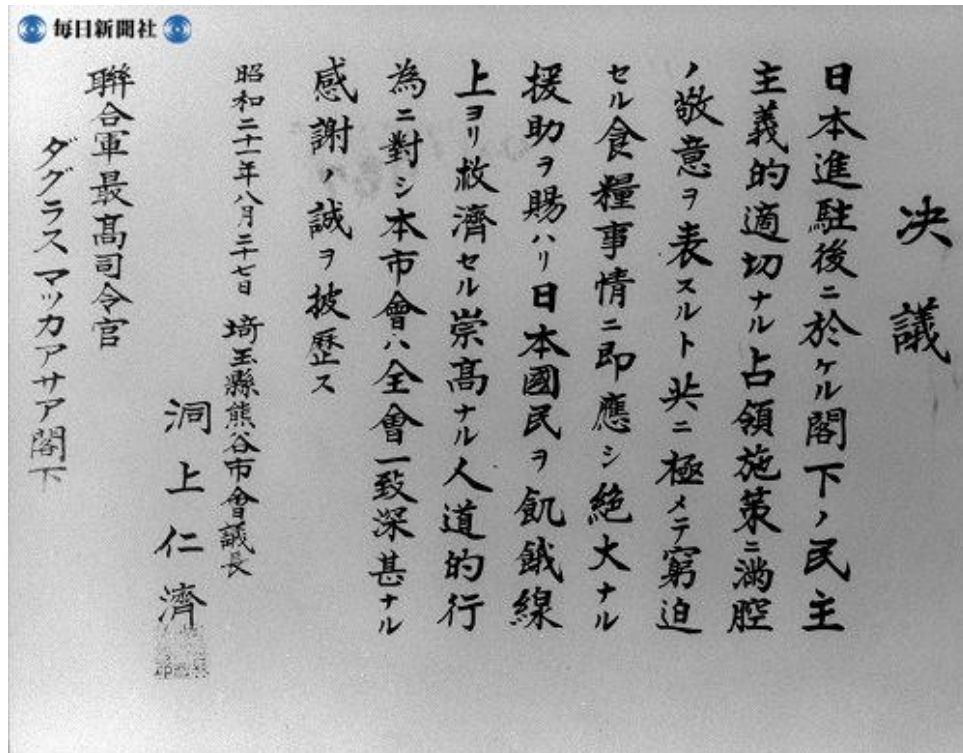 毎日新聞社
決議
日本進駐後ニ於ケル閣下ノ民主
主義的適切ナル占領施策ニ満腔
ノ敬意ヲ表スルト共ニ極メテ窮迫
セル食糧事情ニ即應シ絶大ナル
援助ヲ賜ハリ日本國民ヲ飢餓線
上ヨリ救濟セル崇高ナル人道的行
為ニ對シ本市會ハ全會一致深甚ナル
感謝ノ誠ヲ披歴ス
昭和二十一年八月二十七日 埼玉縣熊谷市會議長
洞上仁濟
聯合軍最高司令官
ダグラスマッカアサア閣下